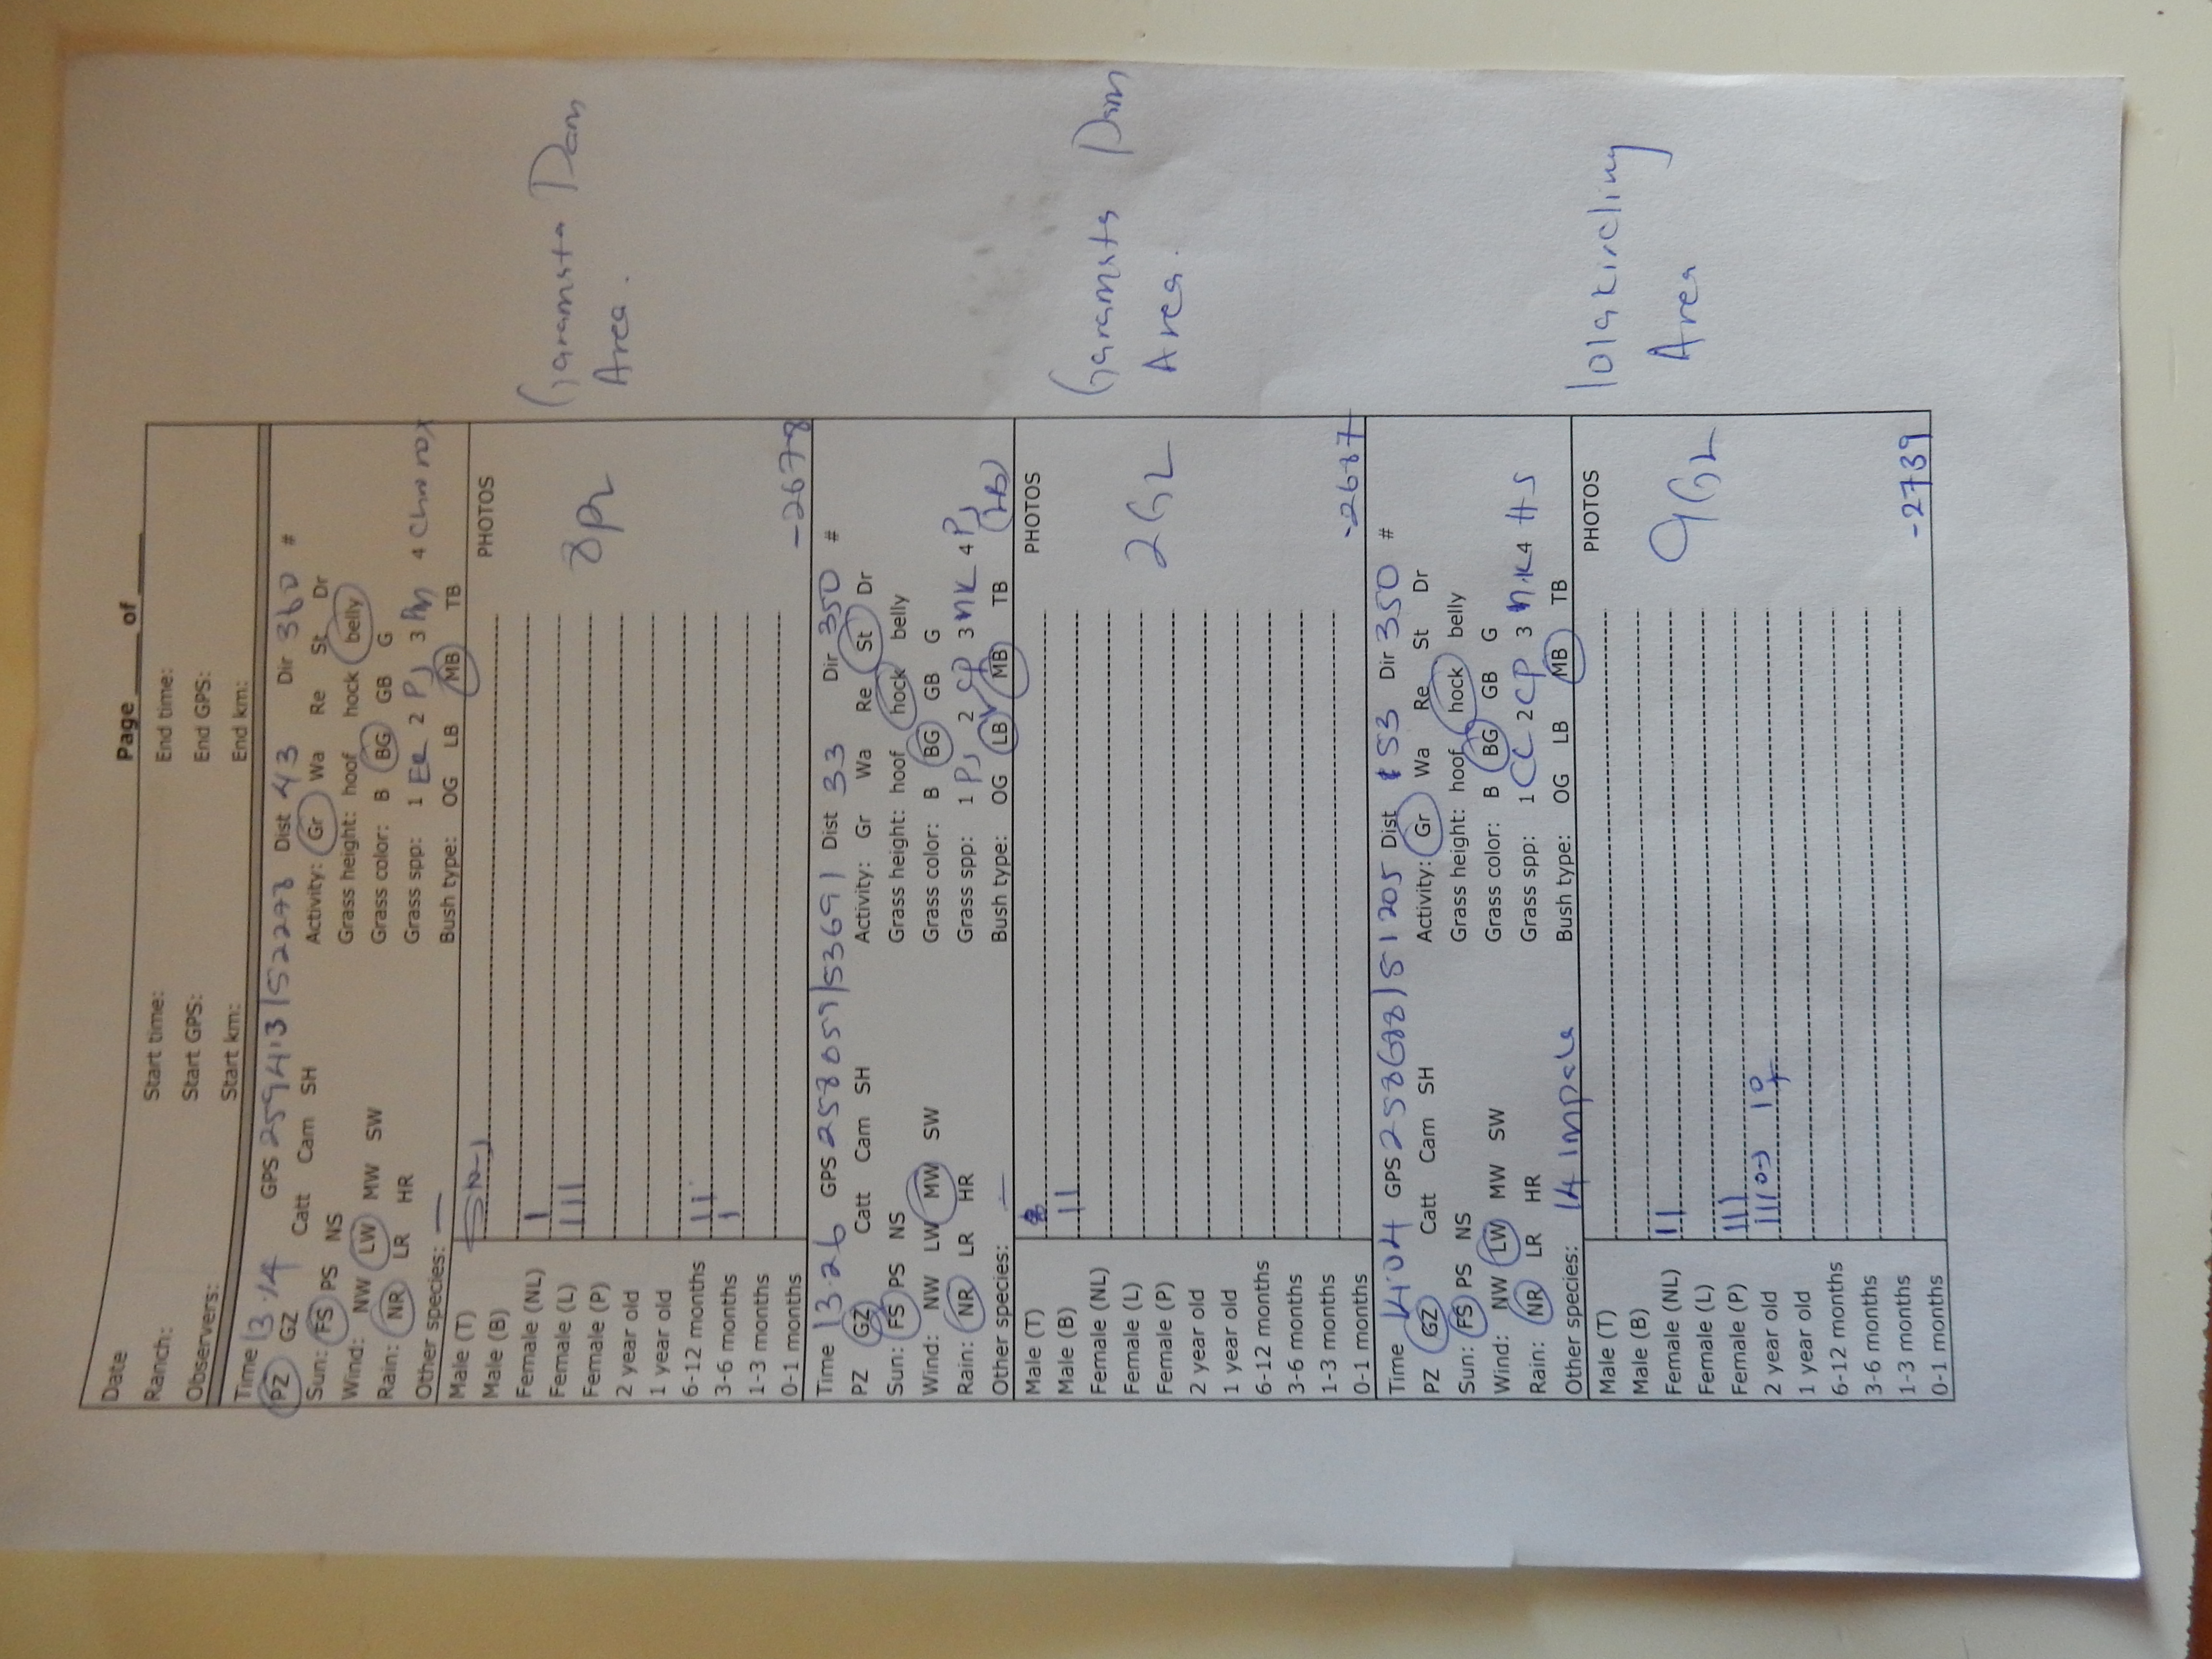 Date Page _____ of _____
Ranch: Start time: End time:
Observers: Start GPS: End GPS:
Start km: End km:
Time 13.14 GPS 259413/52278 Dist 43 Dir 360 #
PZ GZ Catt Cam SH Activity: Gr Wa Re St Dr
Sun: FS PS NS Grass height: hoof hock belly
Wind: NW LW MW SW Grass color: B BG GB G
Rain: NR LR HR Grass spp: 1 Ee 2 Pj 3 4
Other species: — Bush type: OG LB MB TB
Male (T) PHOTOS
Male (B)
Female (NL) I
Female (L) III
Female (P) 8PZ
2 year old
1 year old
6-12 months II
3-6 months I
1-3 months
0-1 months -2678
Garamata Dam
Area.
Time 13.26 GPS 258059/53691 Dist 33 Dir 350 #
PZ GZ Catt Cam SH Activity: Gr Wa Re St Dr
Sun: FS PS NS Grass height: hoof hock belly
Wind: NW LW MW SW Grass color: B BG GB G
Rain: NR LR HR Grass spp: 1 Pj 2 CP 3 NK 4 Pj
Other species: — Bush type: OG LB MB TB (LB)
Male (T) PHOTOS
Male (B) II
Female (NL)
Female (L)
Female (P) 2GZ
2 year old
1 year old
6-12 months
3-6 months
1-3 months
0-1 months -2687
Garamata Dam
Area.
Time 14.04 GPS 258688/51205 Dist 53 Dir 350 #
PZ GZ Catt Cam SH Activity: Gr Wa Re St Dr
Sun: FS PS NS Grass height: hoof hock belly
Wind: NW LW MW SW Grass color: B BG GB G
Rain: NR LR HR Grass spp: 1 CC 2 CP 3 N.K 4 HS
Other species: 14 Impala Bush type: OG LB MB TB
Male (T) PHOTOS
Male (B)
Female (NL) II
Female (L)
Female (P) III 9GZ
2 year old III♂ I♀
1 year old
6-12 months
3-6 months
1-3 months
0-1 months -2739
Area